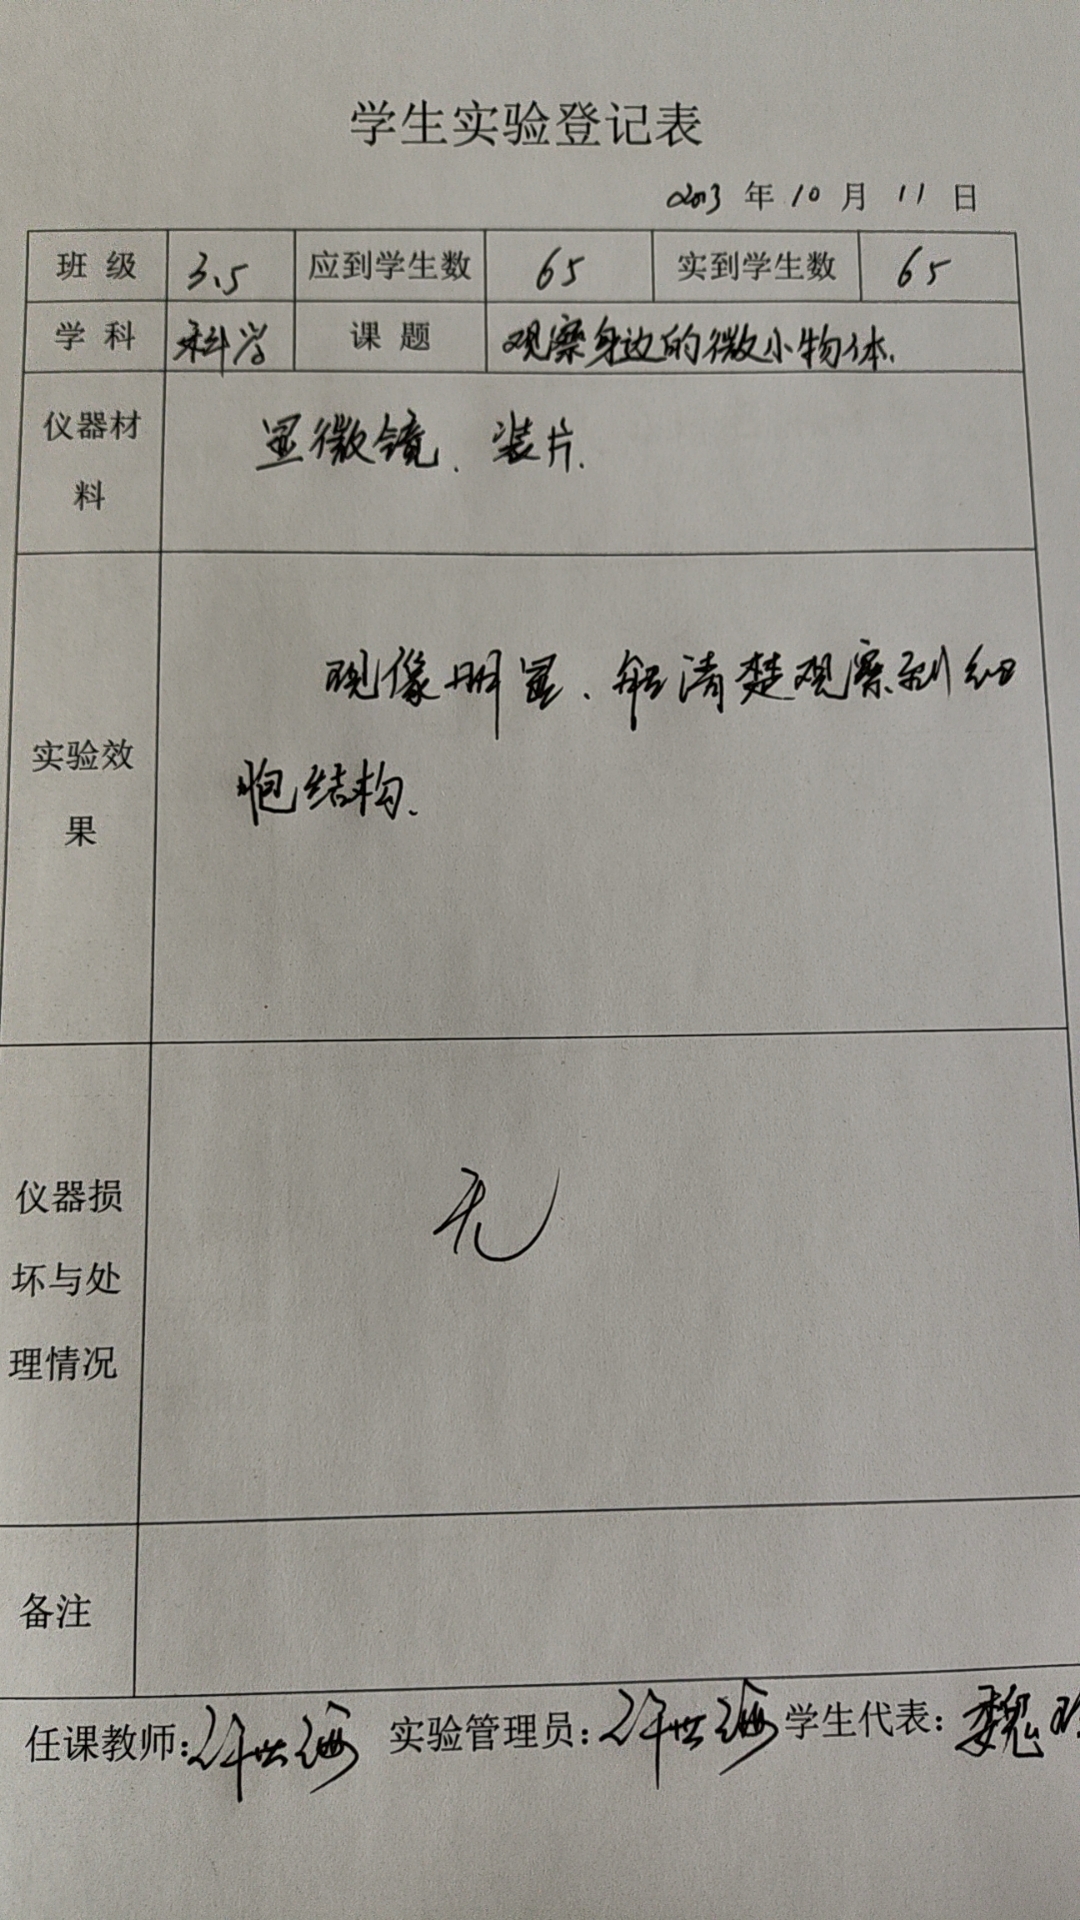 学生实验登记表
2013 年 10 月 11 日
班 级 3.5 应到学生数 65 实到学生数 65
学 科 科学 课 题 观察身边的微小物体.
仪器材
料
显微镜、装片.
实验效
果
现像明显、能清楚观察到细
胞结构.
仪器损
坏与处
理情况
无
备注
任课教师: 实验管理员: 学生代表: 魏